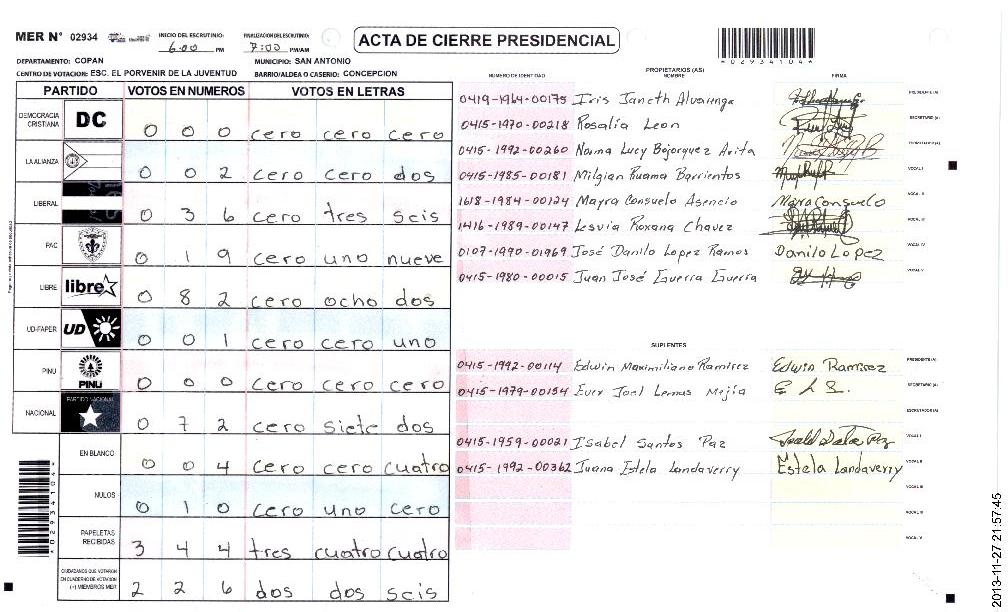 MER N° 02934
INICIO DEL ESCRUTINIO: 6:00 PM
FINALIZACION DEL ESCRUTINIO: 7:00 PM/AM
ACTA DE CIERRE PRESIDENCIAL
*02934104*
DEPARTAMENTO: COPAN
MUNICIPIO: SAN ANTONIO
CENTRO DE VOTACION: ESC. EL PORVENIR DE LA JUVENTUD
BARRIO/ALDEA O CASERIO: CONCEPCION
PARTIDO VOTOS EN NUMEROS VOTOS EN LETRAS
DEMOCRACIA CRISTIANA DC 0 0 0 cero cero cero
LA ALIANZA 0 0 2 cero cero dos
LIBERAL 0 3 6 cero tres seis
PAC 0 1 9 cero uno nueve
LIBRE libre 0 8 2 cero ocho dos
UD-FAPER UD 0 0 1 cero cero uno
PINU PINU 0 0 0 cero cero cero
NACIONAL PARTIDO NACIONAL 0 7 2 cero siete dos
EN BLANCO 0 0 4 cero cero cuatro
NULOS 0 1 0 cero uno cero
PAPELETAS RECIBIDAS 3 4 4 tres cuatro cuatro
CIUDADANOS QUE VOTARON EN CUADERNO DE VOTACION (+) MIEMBROS MER 2 2 6 dos dos seis
*02934104*
PROPIETARIOS (AS)
NUMERO DE IDENTIDAD NOMBRE FIRMA
0419-1964-00175 Iris Janeth Alvarenga PRESIDENTE (A)
0415-1970-00218 Rosalia Leon SECRETARIO (A)
0415-1992-00260 Norma Lucy Bojorquez Arita ESCRUTADOR (A)
0415-1985-00181 Milgian Ruama Barrientos VOCAL I
1618-1984-00124 Mayra Consuelo Asencio Mayra Consuelo VOCAL II
1416-1989-00147 Lesvia Roxana Chavez VOCAL III
0107-1990-01969 José Danilo Lopez Ramos Danilo Lopez VOCAL IV
0415-1980-00015 Juan José Guerra Guerra VOCAL V
SUPLENTES
0415-1992-00114 Edwin Maximiliano Ramirez Edwin Ramirez PRESIDENTE (A)
0415-1979-00154 Ever Joel Lemus Mejía SECRETARIO (A)
ESCRUTADOR (A)
0415-1959-00021 Isabel Santos Paz VOCAL I
0415-1992-00362 Juana Estela Landaverry Estela Landaverry VOCAL II
VOCAL III
VOCAL IV
VOCAL V
2013-11-27 21:57:45